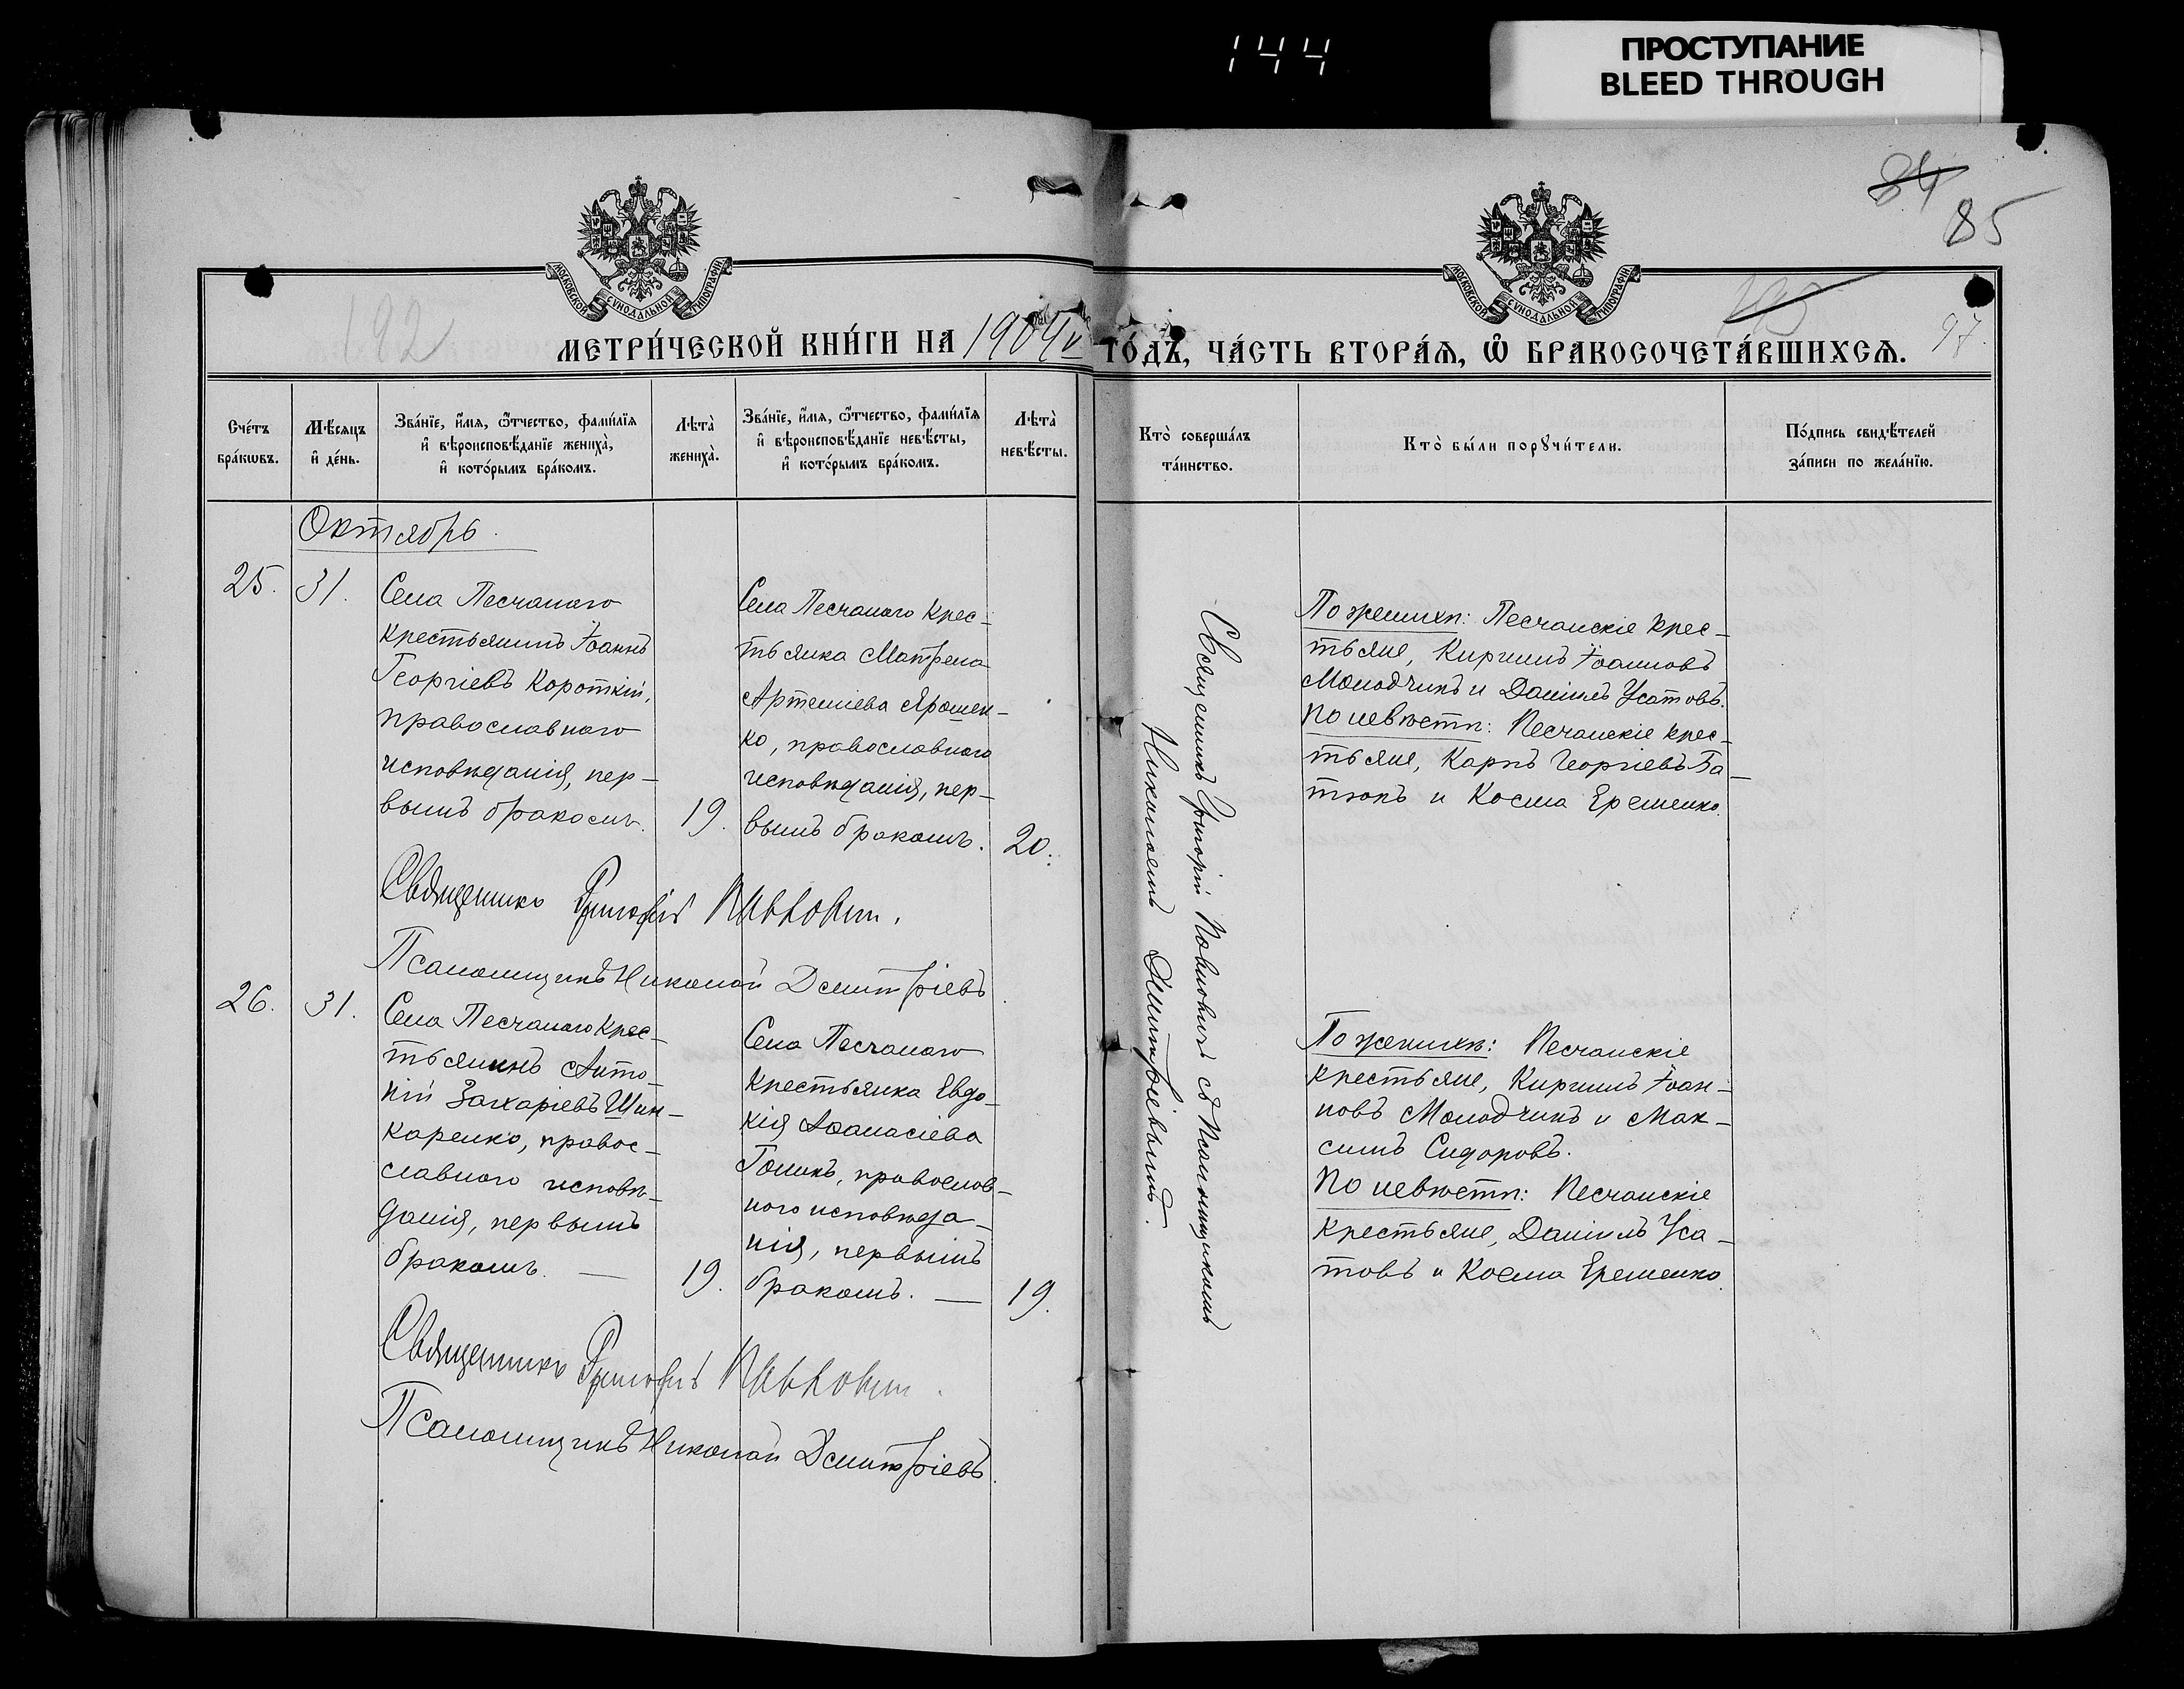 144
ПРОСТУПАНИЕ
BLEED THROUGH
84
85
МОСКОВСКОЙ СУНОДАЛЬНОЙ ТИПОГРАФІИ
МОСКОВСКОЙ СУНОДАЛЬНОЙ ТИПОГРАФІИ
192
97.
МЕТРИ́ЧЕСКОЙ КНИ́ГИ НА 1904й
ГО́ДЪ, ЧА́СТЬ ВТОРА́Ѧ, Ѽ БРАКОСОЧЕТА́ВШИХСѦ.
Сче́тъ
бра́кѡвъ.
Мѣ́сяцъ
и҆ де́нь.
Зва́нїе, и҆́мѧ, ѻ҆́тчество, фамі́лїѧ
и҆ вѣроисповѣ́данїе жениха̀,
и҆ кото́рымъ бра́комъ.
Лѣта̀
жениха̀.
Зва́нїе, и҆́мѧ, ѻ҆́тчество, фамі́лїѧ
и҆ вѣроисповѣ́данїе невѣ́сты,
и҆ кото́рымъ бра́комъ.
Лѣта̀
невѣ́сты.
Кто̀ соверша́лъ
та́инство.
Кто̀ бы́ли порꙋчи́тели.
По́дпись свидѣ́телей
за́писи по жела́нїю.
Октябрь.
25.
31.
Села Песчанаго
крестьянинъ Іоаннъ
Георгіевъ Короткій,
православнаго
исповѣданія, пер-
вымъ бракомъ.
19.
Села Песчанаго крес-
тьянка Матрена
Артеміева Ярошен-
ко, православнаго
исповѣданія, пер-
вымъ бракомъ.
20.
Священникъ Григорій Павловичъ съ Псаломщикомъ
Николаемъ Дмитріевымъ.
По женихѣ: Песчанскіе крес-
тьяне, Кириллъ Іоанновъ
Молодчикъ и Даніилъ Усатовъ.
По невѣстѣ: Песчанскіе крес-
тьяне, Карпъ Георгіевъ Ба-
тюкъ и Косма Еременко.
Священникъ Григорій Павловичъ.
Псаломщикъ Николай Дмитріевъ.
26.
31.
Села Песчанаго крес-
тьянинъ Анто-
ній Захаріевъ Шин-
каренко, правос-
лавнаго исповѣ-
данія, первымъ
бракомъ. —
19.
Села Песчанаго
крестьянка Евдо-
кія Аѳанасіева
Голикъ, православ-
наго исповѣда-
нія, первымъ
бракомъ. —
19.
По женихѣ: Песчанскіе
крестьяне, Кириллъ Іоан-
новъ Молодчикъ и Мак-
симъ Сидоровъ.
По невѣстѣ: Песчанскіе
крестьяне, Даніилъ Уса-
товъ и Косма Еременко.
Священникъ Григорій Павловичъ.
Псаломщикъ Николай Дмитріевъ.